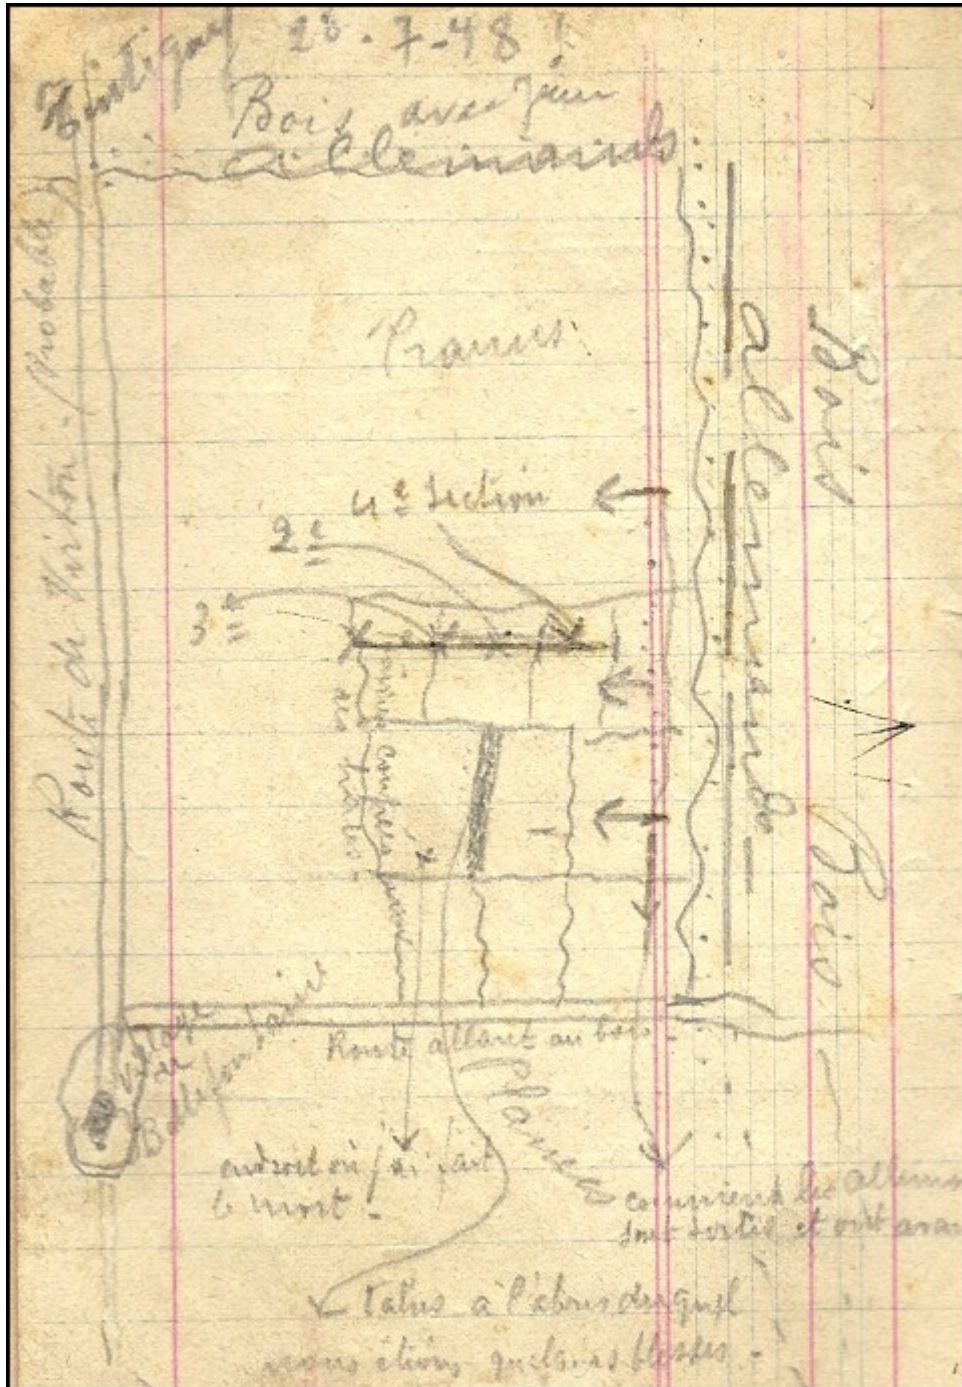 Tintigny 28-7-48!
Bois avec
allemands
Route de Virton (Probable)
4e Section
2e
3e
allemands
Bois
Bois
des
Village de Bellefontaine
Route allant au bois.
Plaine
endroit où j'ai fait
le mort.
comment les allem
sont sortis et ont ava
Talus à l'abris duquel
nous étions quelques blessés.